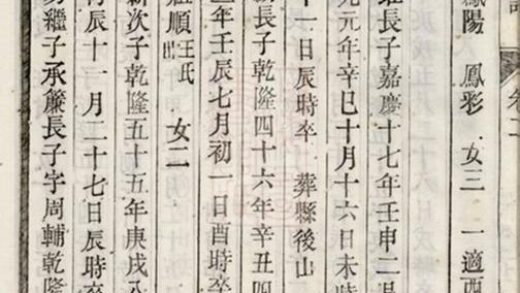 卷二
鳳陽 鳳彩 女三 一適西
長子嘉慶十七年壬申二月
光元年辛巳十月十六日未時
十一日辰時卒 葬縣後山
長子乾隆四十六年辛丑四
年壬辰七月初一日酉時卒
順 氏出 女二
新次子乾隆五十五年庚戌八
辰十一月二十七日辰時卒
繼子承簾長子字周輔乾隆